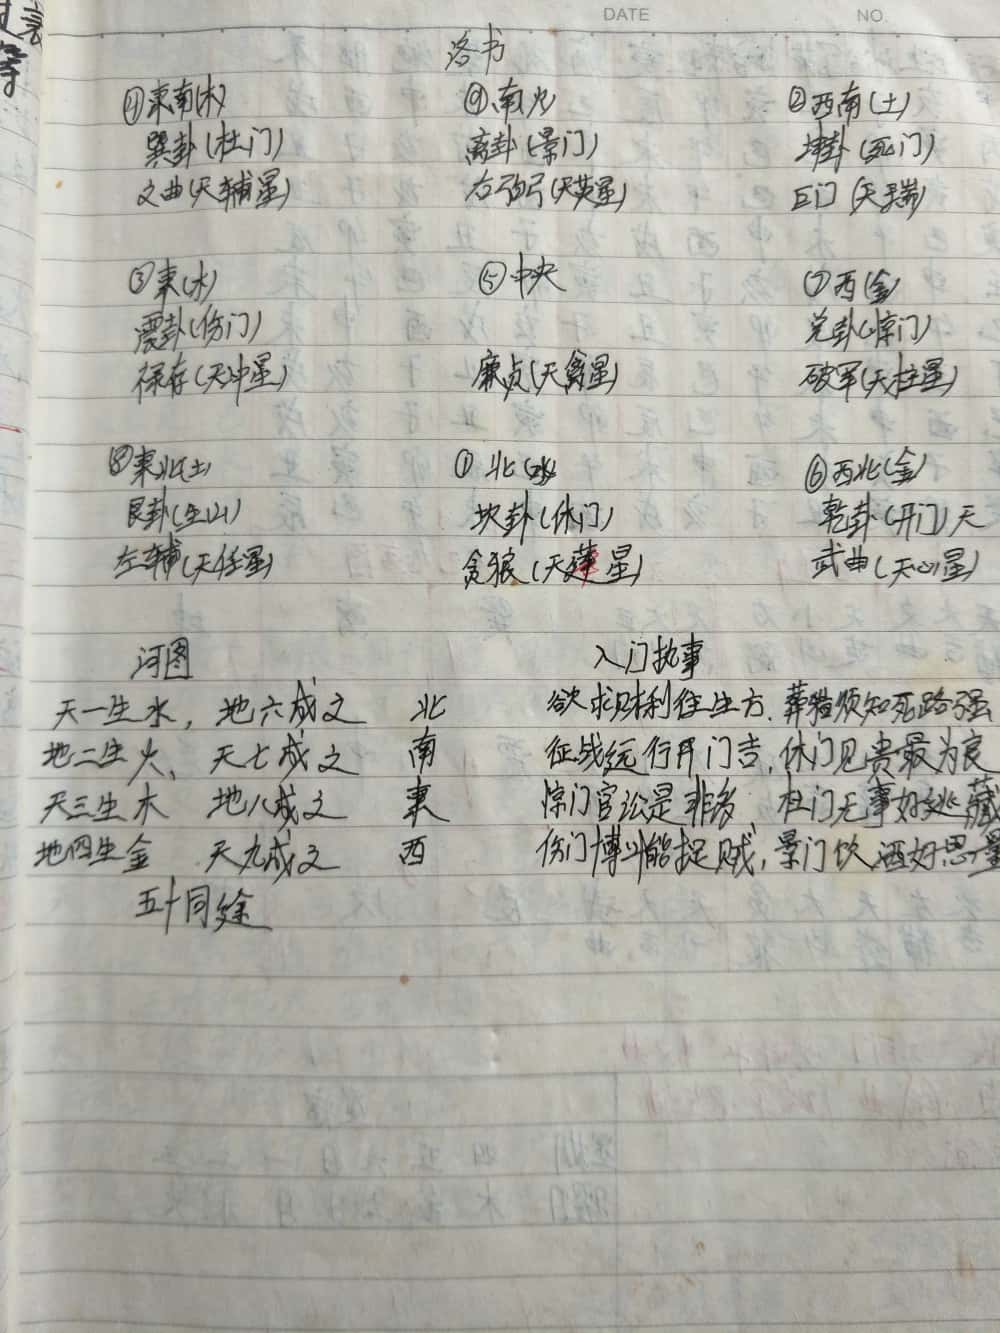 DATE NO.
洛书
④东南(木) ⑨南火 ②西南(土)
巽卦(杜门) 离卦(景门) 坤卦(死门)
文曲(天辅星) 右弼(天英星) 巨门(天芮)
③东(木) ⑤中央 ⑦西(金)
震卦(伤门) 兑卦(惊门)
禄存(天冲星) 廉贞(天禽星) 破军(天柱星)
⑧东北(土) ①北(水) ⑥西北(金)
艮卦(生山) 坎卦(休门) 乾卦(开门)天
左辅(天任星) 贪狼(天蓬星) 武曲(天心星)
河图 入门执事
天一生水, 地六成之 北 欲求财利往生方、葬猎须知死路强
地二生火、天七成之 南 征战远行开门吉,休门见贵最为良
天三生木 地八成之 东 惊门官讼是非多、杜门无事好逃藏
地四生金 天九成之 西 伤门博斗能捉贼,景门饮酒好思量
五十同途